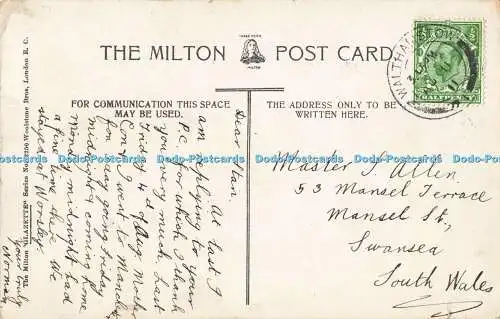 THE MILTON POST CARD
TRADE MARK
MILTON
FOR COMMUNICATION THIS SPACE
MAY BE USED.
THE ADDRESS ONLY TO BE
WRITTEN HERE.
The Milton "GLAZETTE" Series Woolstone Bros., London E. C.
Dear Stan
At last I
am replying to your
P.C. for which I thank
you very much. Last
Friday 4 of Aug Mother
I went to Manchr
for day going Friday
midnight & coming home
Monday midnight had
a fine time there. We
stayed at Worsley.
yours truly
Norman
Master S. Allen
53 Mansel Terrace
Mansel St,
Swansea
South Wales
WALTHAMSTOW
HALFPENNY
Dodo-Postcards Dodo-Postcards Dodo-Postcards Dodo-Postcards